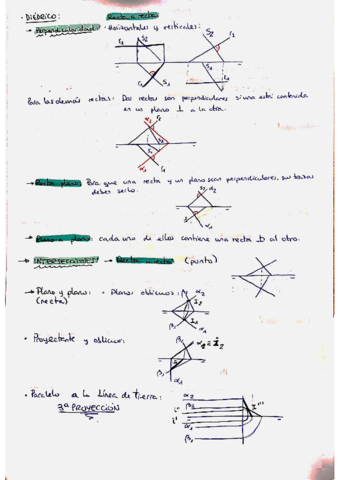 - DIÉDRICO:
Recta a recta
→ Perpendicularidad - Horizontales y verticales:
r₂ S₂ S₂ r₂
r₁ S₁ S₁ r₁
Para las demás rectas: Dos rectas son perpendiculares si una está contenida
en un plano ⊥ a la otra.
→ Recta plano: Para que una recta y un plano sean perpendiculares, sus trazas
deben serlo.
→ Plano a plano: cada uno de ellos contiene una recta ⊥ al otro.
→ INTERSECCIONES → Recta a recta (punto)
→ Plano y plano: • Planos oblicuos: β₂ α₂
(recta)
β₁ α₁
• Proyectante y oblicuo: β₂ α₂ ≡ i₂
β₁ α₁
• Paralelo a la línea de tierra: α₂
3ª PROYECCIÓN β₂
i''
i' i'''
α₁
β₁